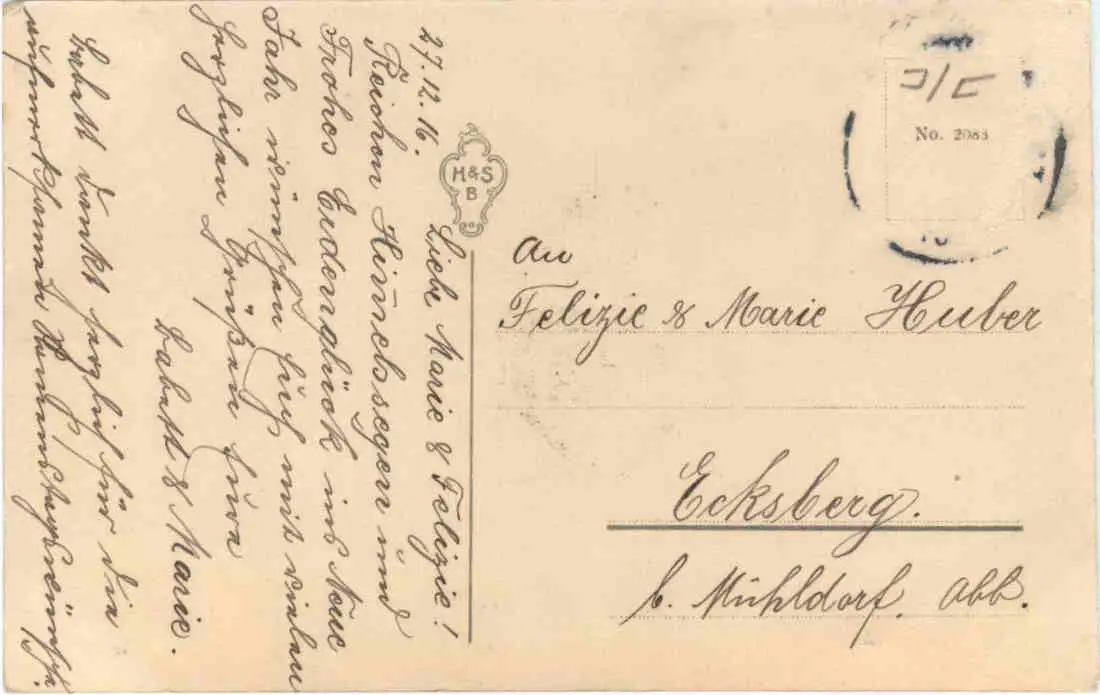 27.12.16.
Liebe Marie & Felizie!
Reichen Himmelssegen und
Frohes Erdenglück ins Neue
Jahr wünschen Euch mit vielen
herzlichen Grüßen Eure
Babett & Marie.
Babett dankt herzlich für die
Namenstagswünsche.
H&S
B
No. 2083
An
Felizie & Marie Huber
Ecksberg.
b. Mühldorf. Obb.